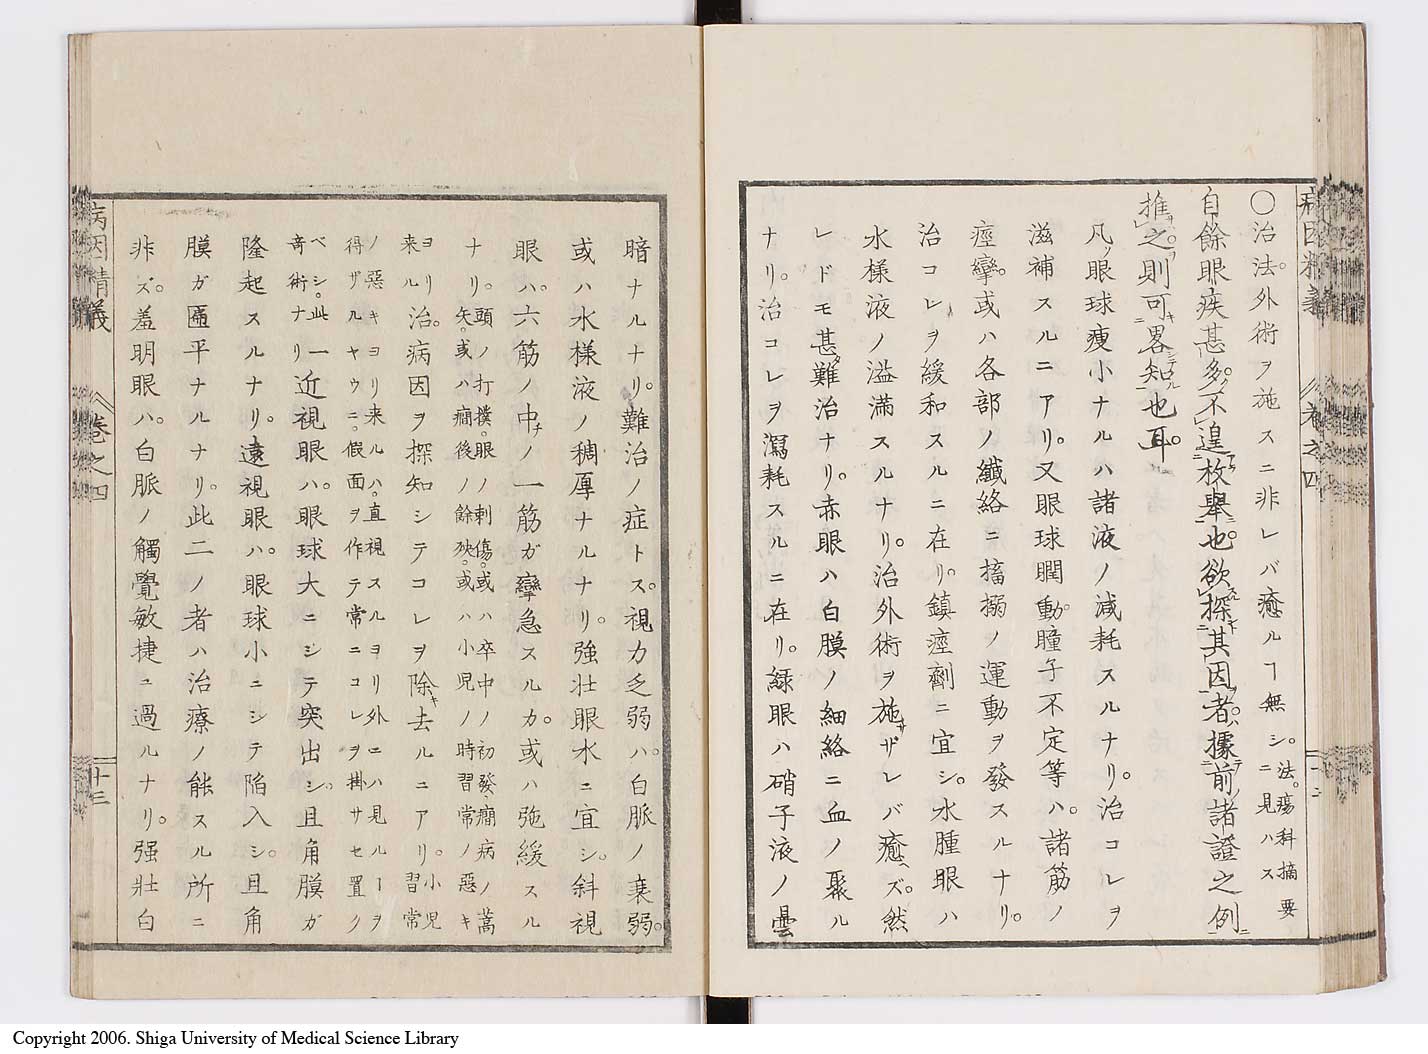 病因精義 卷之四 十二
〇治法。外術ヲ施スニ非レバ癒ルヿ無シ。法。瘍科摘要ニ見ハス
自餘眼疾甚多。不遑枚擧也。欲探其因者。據前諸證之例
推之。則可畧知也耳。
凡ノ眼球瘦小ナルハ諸液ノ減耗スルナリ。治コレヲ
滋補スルニアリ。又眼球瞤動。瞳子不定等ハ。諸筋ノ
痙攣。或ハ各部ノ纖絡ニ搐搦ノ運動ヲ發スルナリ。
治コレヲ緩和スルニ在リ。鎮痙劑ニ宜シ。水腫眼ハ
水樣液ノ溢滿スルナリ。治外術ヲ施サザレバ癒ズ。然
レドモ甚ダ難治ナリ。赤眼ハ白膜ノ細絡ニ血ノ聚ル
ナリ。治コレヲ瀉耗スルニ在リ。緑眼ハ硝子液ノ曇
暗ナルナリ。難治ノ症トス。視力乏弱ハ。白脈ノ衰弱。
或ハ水樣液ノ稠厚ナルナリ。強壯眼水ニ宜シ。斜視
眼ハ。六筋ノ中ナノ一筋ガ攣急スルカ。或ハ弛緩スル
ナリ。頭ノ打撲。眼ノ刺傷。或ハ卒中ノ初發、癇病ノ蒿
矢。或ハ癇後ノ餘殃。或ハ小児ノ時習常ノ惡キ
ヨリ来ル。治。病因ヲ探知シテコレヲ除キ去ルニアリ。小児習常
ノ惡キヨリ来ルハ。直視スルヨリ外ニハ見ルヿヲ
得ザルヤウニ。假面ヲ作テ常ニコレヲ掛サセ置ク
ベシ。此一奇術ナリ 近視眼ハ。眼球大ニシテ突出シ。且角膜ガ
隆起スルナリ。遠視眼ハ。眼球小ニシテ陷入シ。且角
膜ガ匾平ナルナリ。此二ノ者ハ治療ノ能スル所ニ
非ズ。羞明眼ハ。白脈ノ觸覺敏捷ニ過ルナリ。强壯白
病因精義 卷之四 十三
Copyright 2006. Shiga University of Medical Science Library